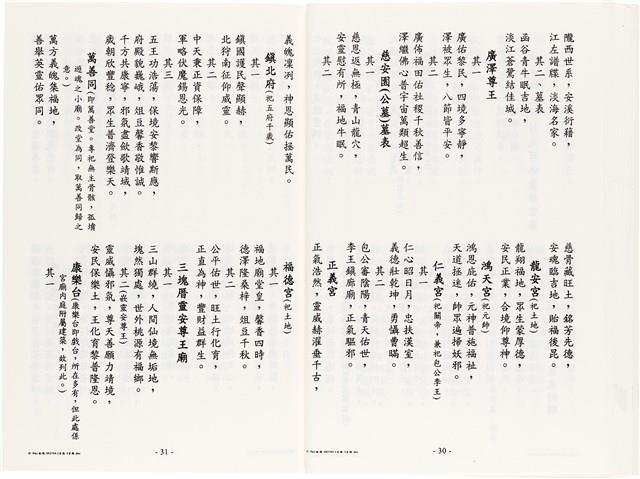 隴西世系，安溪衍籍，
江左譜牒，淡海名家。
其二、墓表
函谷青牛眠吉地，
淡江蒼鷺結佳城。
廣澤尊王
其一
廣佑黎民，四境多寧靜，
澤被眾生，八節皆平安。
其二
廣佈福田佑社稷千秋善信，
澤繼佛心普宇宙萬類超生。
慈安園(公墓)墓表
其一
慈恩返無極，青山龍穴，
安靈慰有所，福地牛眠。
其二
慈骨藏旺土，銘芳先德，
安魂臨吉地，貽福後昆。
龍安宮(祀土地)
龍翔福地，眾生蒙厚德，
安民正業，合境仰尊神。
鴻天宮(祀元帥)
鴻恩庇佑，元神普施福祉，
天道拯迷，帥眾遍掃妖邪。
仁義宮(祀關帝，兼祀包公李王)
其一
仁心昭日月，忠扶漢室，
義德壯乾坤，勇懾曹瞞。
其二
包公審陰陽，青天佑世，
李王鎮廊廟，正氣驅邪。
正義宮
正氣浩然，靈威赫濯垂千古，
- 30 -
義魄凜冽，神恩顯佑拯萬民。
鎮北府(祀五府千歲)
其一
鎮國護民聲顯赫，
北狩南征仰威靈。
其二
中天秉正資保障，
軍略伏魔錫恩光。
其三
五王功浩蕩，保境安黎響斯應，
府殿貌巍峨，俎豆馨香敬惟誠。
千方共康寧，邪氣盡斂歌靖域，
歲朝欣豐稔，眾生普濟登樂天。
萬善同(即萬善堂。專祀無主骨骸，孤墳
遊魂之小廟。改堂為同，取萬善同歸之
意。)
萬方義魄集福地，
善舉英靈佑眾同。
福德宮(祀土地)
其一
福地廟堂皇，馨香四時，
德澤隆桑梓，俎豆千秋。
其二
公平佑世，旺土行化育，
正直為神，豐財益群生。
三塊厝靈安尊王廟
其一
三山群繞，人間仙境無垢地，
塊然獨處，世外桃源有福鄉。
其二(嵌靈安尊王)
靈威懾邪氣，尊天善願力靖境，
安民保樂土，王化育黎普隆恩。
康樂台(康樂台即戲台，所在多有，但此處係
宮廟內庭附屬建築，故列此。)
其一
- 31 -